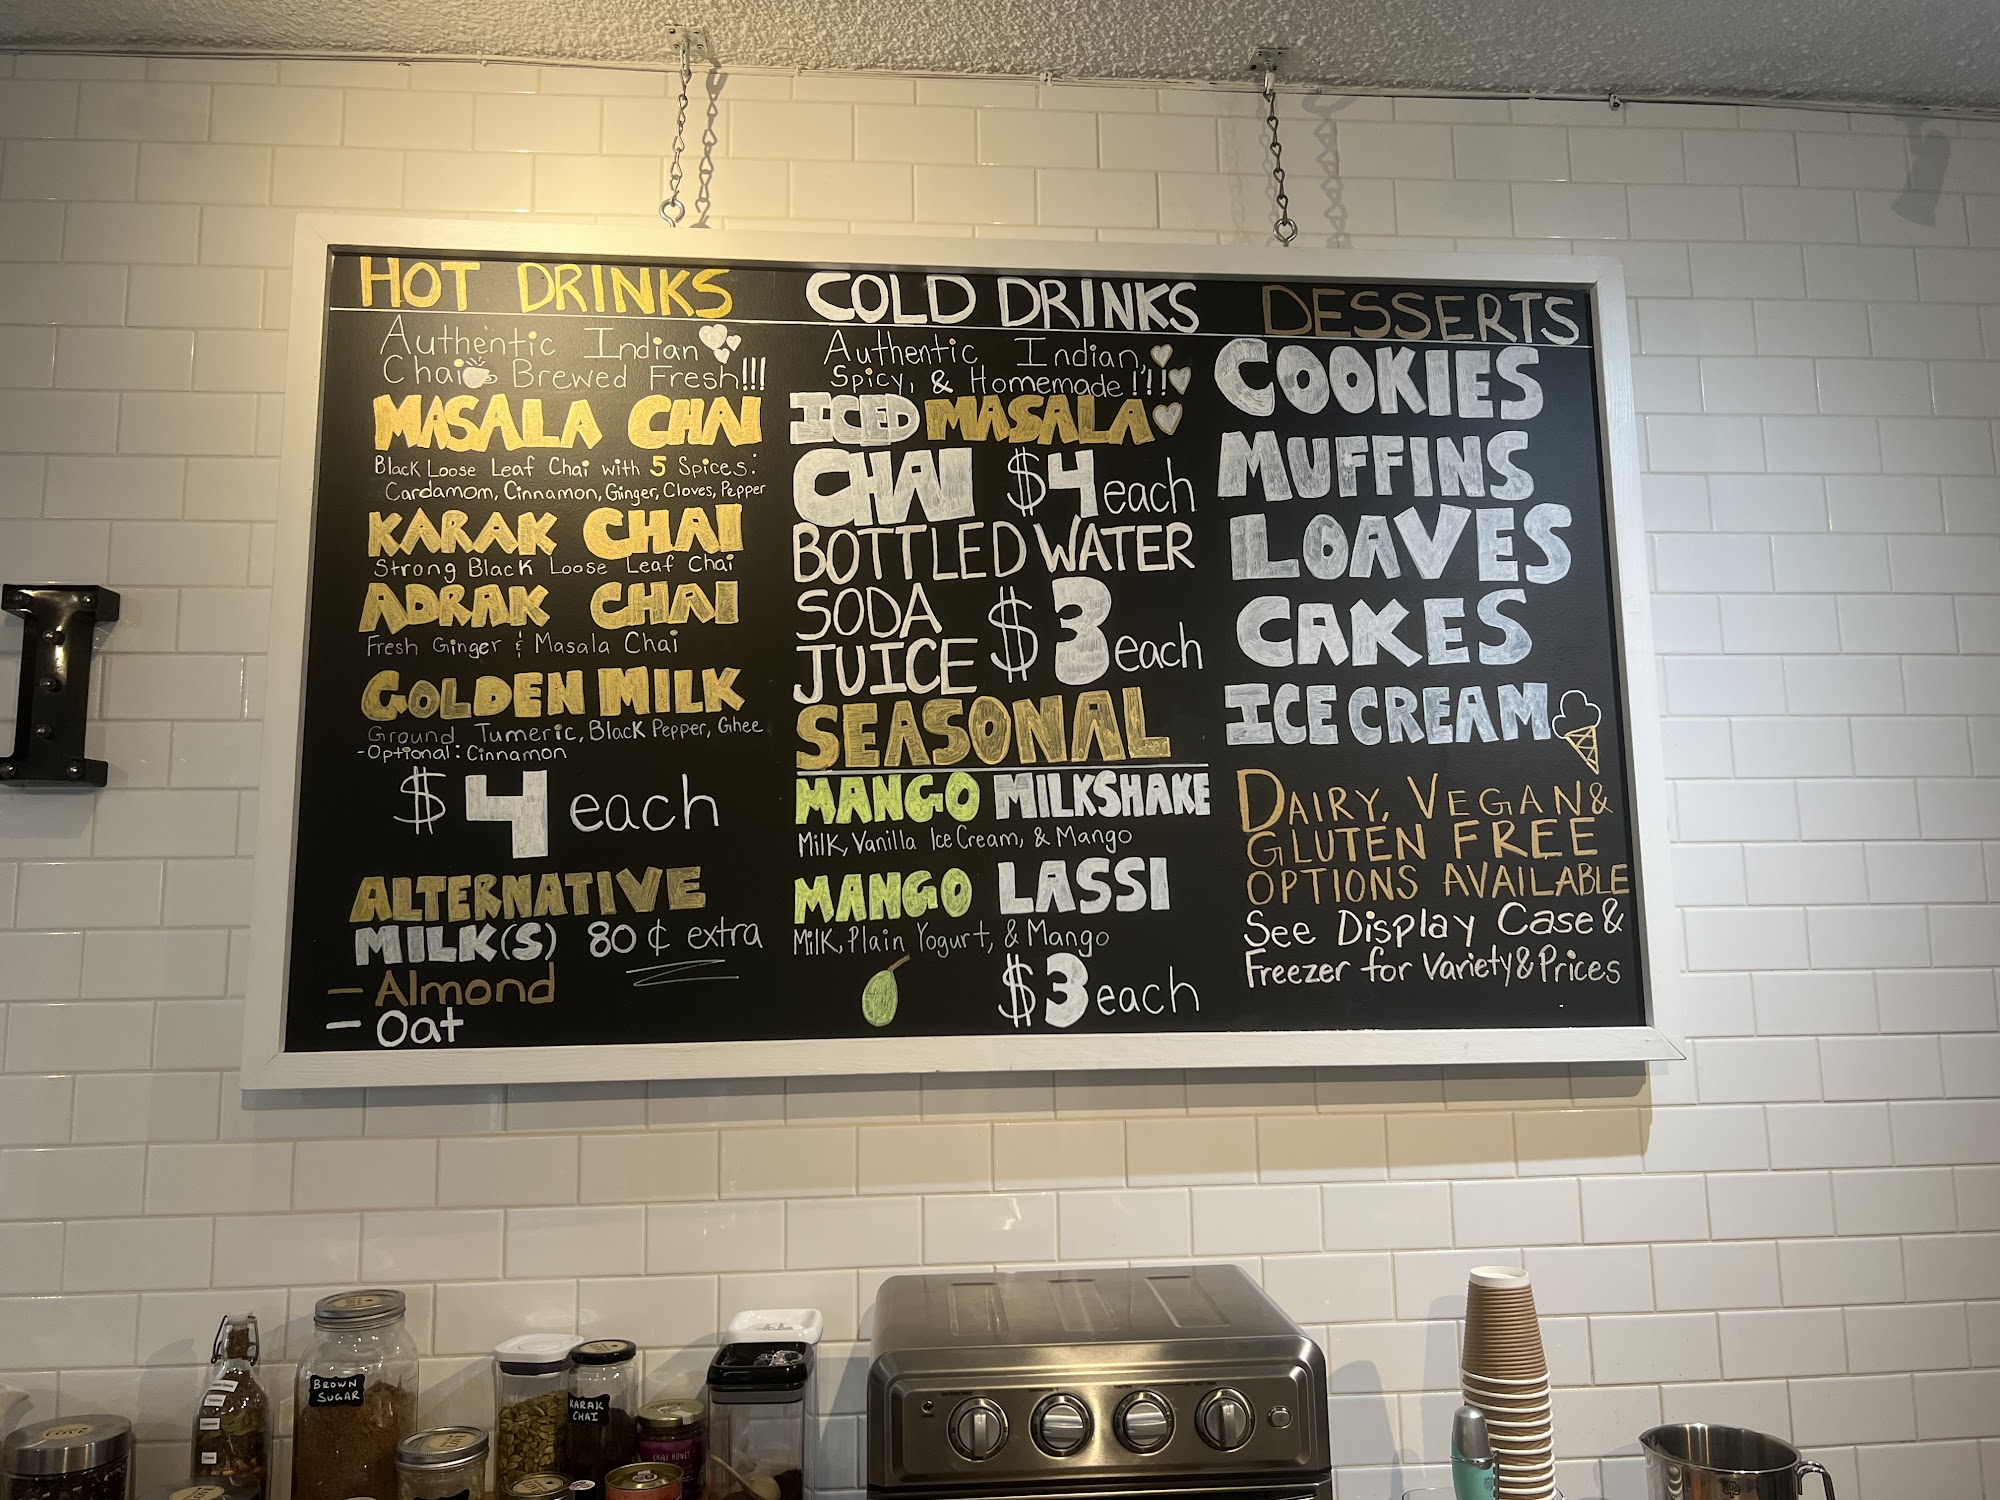 HOT DRINKS
Authentic Indian
Chai Brewed Fresh!!!
MASALA CHAI
Black Loose Leaf Chai with 5 Spices:
Cardamom, Cinnamon, Ginger, Cloves, Pepper
KARAK CHAI
Strong Black Loose Leaf Chai
ADRAK CHAI
Fresh Ginger & Masala Chai
GOLDEN MILK
Ground Tumeric, Black Pepper, Ghee
-Optional: Cinnamon
$4 each
ALTERNATIVE
MILK(S) 80¢ extra
- Almond
- Oat
COLD DRINKS
Authentic Indian,
Spicy, & Homemade!!!
ICED MASALA
CHAI $4 each
BOTTLED WATER
SODA
JUICE $3 each
SEASONAL
MANGO MILKSHAKE
Milk, Vanilla Ice Cream, & Mango
MANGO LASSI
Milk, Plain Yogurt, & Mango
$3 each
DESSERTS
COOKIES
MUFFINS
LOAVES
CAKES
ICE CREAM
DAIRY, VEGAN &
GLUTEN FREE
OPTIONS AVAILABLE
See Display Case &
Freezer for Variety & Prices
I
BROWN
SUGAR
KARAK
CHAI
CHAI HONEY